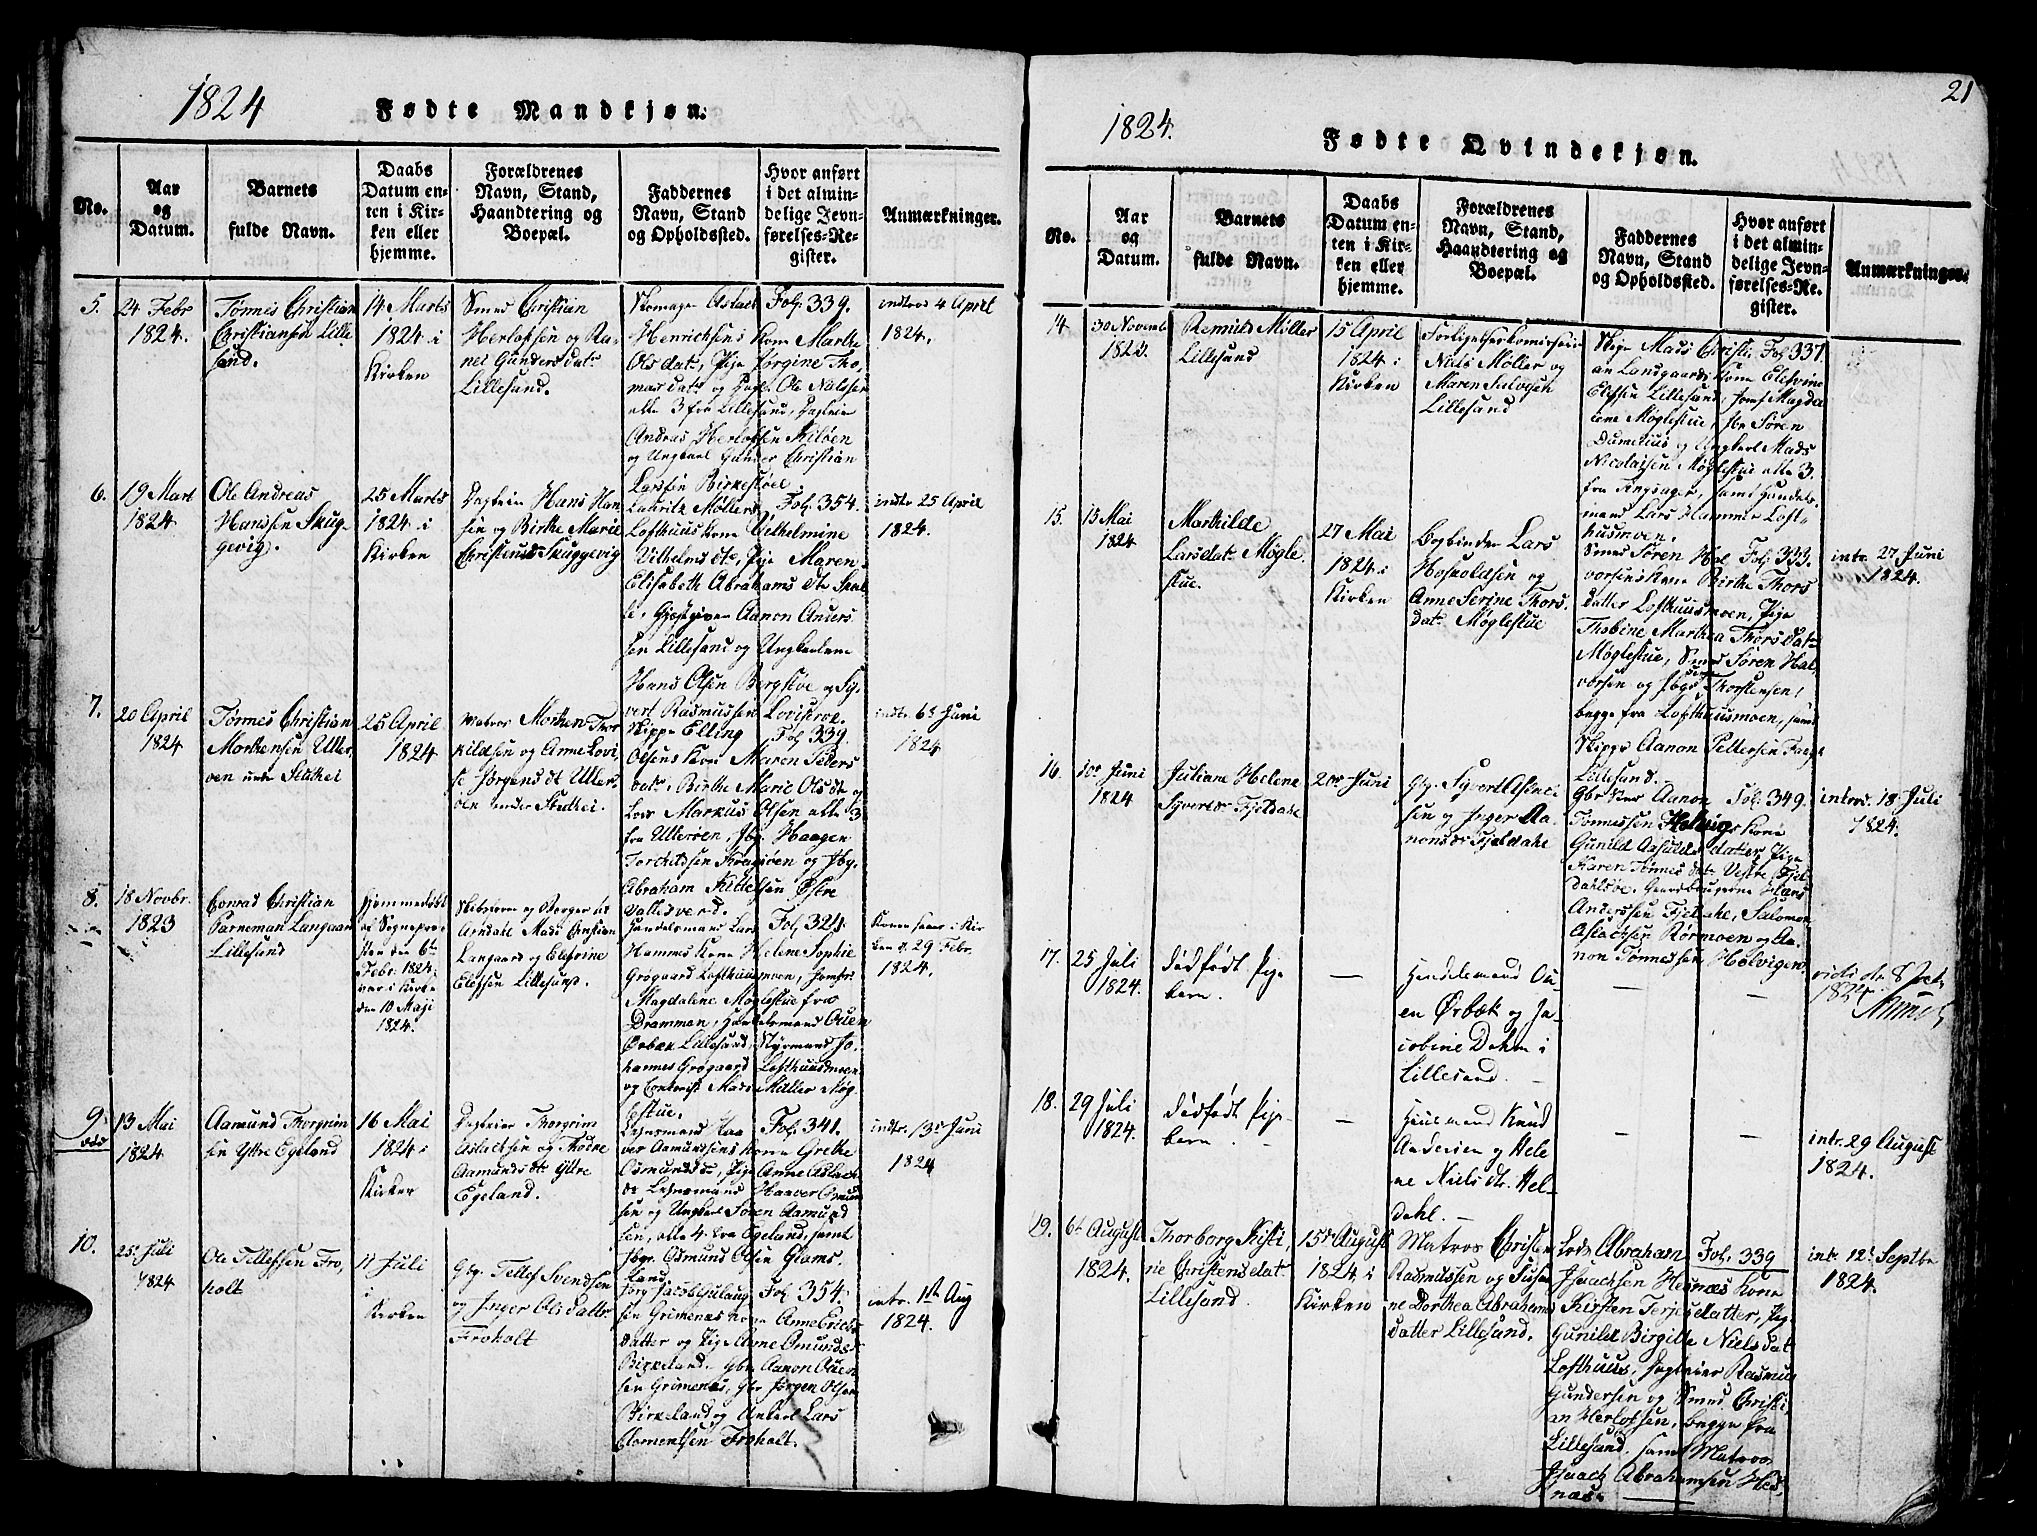 1824
Fødte Mandkjøn.
No.
Aar
og
Datum.
Barnets
fulde Navn.
Daabs
Datum en-
ten i Kir-
ken eller
hjemme.
Forældrenes
Navn, Stand,
Haandtering og
Boepæl.
Faddernes
Navn, Stand
og Opholdssted.
Hvor anført
i det almin-
delige Jevn-
førelses-Re-
gister.
Anmærkninger.
5.
24 Febr
1824.
Tønnes Christian
Christiansen Lille
sand.
14 Marts
1824 i
Kirken
Smed Christian
Herlofsen og Ra-
nei Gundersdatr
Lillesand.
Henrichsens Kone Marthe
Olsdatr, Pige Jørgine Tho-
masdatr og Ole Nielsen
alle 3 fra Lillesand,
Andreas Herlofsen
og Ungkarl Gunder Christian
Larssen Birkestøel.
Fol. 339.
indtrod 4 April
1824.
6.
19 Mart
1824
Ole Andreas
Hanssen Skug
gevig.
25 Marts
1824 i
Kirken
Hans Han
sen og Birthe Marie
Christiansd Skuggevig
Lauritz Møllers
Lofthuus Kone Vilhelmine
Vilhelmsdtr, Pige Maren
Elisabeth Abrahamsdtr
Gjæstgiver Aanon Anders
sen Lillesand og Ungkarlene
Hans Olsen Bergstøe og Sy
vert Rasmussen
Fol. 354.
indtr 25 April
1824.
7.
20 April
1824
Tønnes Christian
Morthensen Uller
øen
25 April
1824
Matros Morthen Thor
kildsen og Anne Lovi
se Jørgensdt Uller
øen under
Skipper Elling
Olsens Kone Maren Peders
datr, Birthe Marie Olsdt og
Lods Markus Olsen alle 3
fra Ullerøen, Haagen
Torchildsen Kragsøen og
Abraham Kittelsen Østre
Vallesverd.
Fol. 339.
indtr. 6te Juni
1824
8.
18 Novbr.
1823
Conrad Christian
Parneman Langaard
Lillesand
Hjemmedøbt
af Sognepre-
sten den 6te
Febr. 1824,
var i Kirke
den 10 Maji
1824.
Skibsfører og Borger til
Arendahl Mads Christian
Langaard og Elefvine
Elefsen Lillesand.
Handelsmand Lars
Hammers Kone Helene Sophie
Grøgaard Lofthuusmoen, Jomfru
Magdalene Møglestue fra
Drammen, Handelsmand Ouen
Ørbæk Lillesand, Styrmand Jo-
hannes Grøgaard Lofthuusmoen
og Mads Møller Møg
lestue.
Fol. 321.
Konen var i Kir
ken d. 29 Febr.
1824.
9.
13 Mai
1824
Aamund Thorgrim
sen Yttre Egeland
16 Mai
1824 i
Kirken
Thorgrim
Aslachsen og Thorne
Aamundsdtr Yttre
Egeland.
Lehnsmand Haa
ver Aamundsens Kone Grethe
Osmundsdtr, Pige Anne Aslachs
dtr Lehnsmand Haaver Osmund
sen og Ungkarl Søren Aamund
sen, alle 4 fra Egeland, samt
Osmund Olsen Glams
land
Fol. 341.
indtr. 13de Juni
1824
10.
25 Juli
1824
Ole Tellefssen Fro
holt
11 Juli
i
Kirken
Tellef Svendsen
og Inger Olsdatter
Froholt
Jørg. Jacob Gulang
sen Grimenæs Kone Anne Erichs
datter og Pige Anne Omunds
Birkeland. Gbr Aanon Ouen
sen Grimenæs, Gbr Jørgen Olsen
Birkeland og Unkarl Lars
Clementsen Froholt.
Fol. 354.
intr. 1ste Aug
1824.
21
1824.
Fødte Qvindekjøn.
No.
Aar
og
Datum.
Barnets
fulde Navn.
Daabs
Datum en-
ten i Kir-
ken eller
hjemme.
Forældrenes
Navn, Stand,
Haandtering og
Boepæl.
Faddernes
Navn, Stand
og Opholdssted.
Hvor anført
i det almin-
delige Jevn-
førelses-Re-
gister.
Anmærkninger.
14
30 Novemb
1823.
Møller
Lillesand
15 April
1824 i
Kirken
Forligelseskomissair
Niels Møller og
Maren Salvesen
Lillesand
Mads Christi
an Landgaards Kone Elefvine
Elefsen Lillesand, Jomf Magda
lene Møglestue, Hr Søren
og Ungkarl Mads
Nicolaisen Møglestue alle 3.
fra Tingsager, samt Handels
mand Lars Hammer Loft-
husmoen.
Fol. 331.
15.
13 Mai
1824
Marthilde
Larsdatr Møgle
stue.
27 Mai
1824 i
Kirken
Bogbinder Lars
Hoskoldsen og
Anne Serine Thors
datr Møglestue
Smed Søren Hal
vorsens Kone Birthe Thors
datter Lofthuusmoen, Pige
Thobine Marthea Thorsdatr
Møglestue, Smed Søren Hal
vorsen og Thorstensen,
begge fra Lofthuusmoen, samt
Skipper Aanon Pettersen
Lillesand.
Fol. 333.
intr. 27 Juni
1824.
16.
10de Juni
1824
Juliane Helene
Syvertsdr Fjeldahl
20de Juni
Syvert
sen og Inger Aa
nonsdr Fjeldahl
Aanon
Tønnessen Helvigs Kone
Gunild Asfuldsdatter, Pige
Karen Tønnesdatr Vestre Fjel
dahlsøe, Gaardbrugerne Hans
Andersen Fjeldahl, Salomon
Aslachsen Rørmoen og Aa-
non Tønnessen Hølvigen.
Fol. 349.
introd. 18 Juli
1824.
17.
25 Juli
1824.
Dødfødt Pige
barn.
—
Handelsmand Ou-
en Ørbek og Ja-
cobine Dahm i
Lillesand.
—
—
vidi d. 8 Sept.
1824.
18.
29 Juli
1824.
Dødfødt Pige-
barn.
—
Huusmand Knud
Andersen og Hele
ne Nielsdtr. Hel-
dahl.
—
—
intr. 29 August
1824.
19.
6te August
1824.
Thorborg Kisti
ne Christensdat.
Lillesand.
15de August
1824 i
Kirken
Matros Christen
Rasmussen og Susan
ne Dorthea Abrahams
datter Lillesand.
Lods Abraham
Isaachsen Hesnæs Kone
Kirsten Terjesdatter, Pige
Gunild Birgitte Nielsdat
Lofthuus, Rasmus
Gundersen og Smed Christi
an Herlofsen, begge fra
Lillesand, samt Matros
Isaach Abrahamsen Hes
næs.
Fol. 339
intr 12te Septbr
1824.